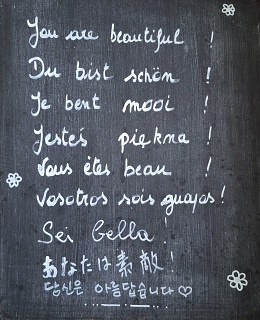 You are beautiful !
Du bist schön !
Je bent mooi !
Jesteś piękna !
Vous êtes beau !
Vosotros sois guapos !
Sei bella !
あなたは素敵 !
당신은 아름답습니다 ♡